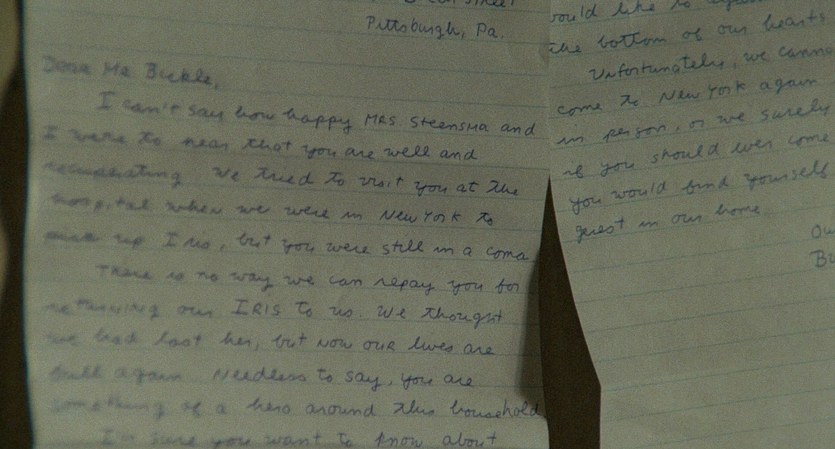 Pittsburgh, Pa.
Dear Mr Bickle,
I can't say how happy MRS Steensma and
I were to hear that you are well and
recuperating. We tried to visit you at the
hospital when we were in New York to
pick up Iris, but you were still in a coma.
There is no way we can repay you for
returning our IRIS to us. We thought
we had lost her, but now our lives are
full again. Needless to say, you are
something of a hero around this household
I'm sure you want to know about
would like to
the bottom of our hearts
Unfortunately, we canno
come to New York again
in person, or we surely
if you should ever come
you would find yourself
guest in our home.
Ou
Bu